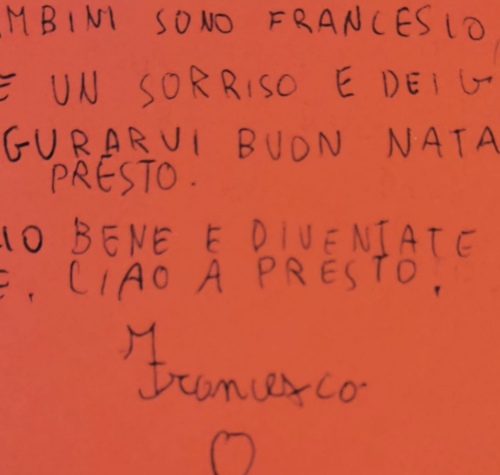 MBINI SONO FRANCESCO
E UN SORRISO E DEI
GURARVI BUON NATA
PRESTO.
IO BENE E DIVENTATE
E. CIAO A PRESTO.
Francesco